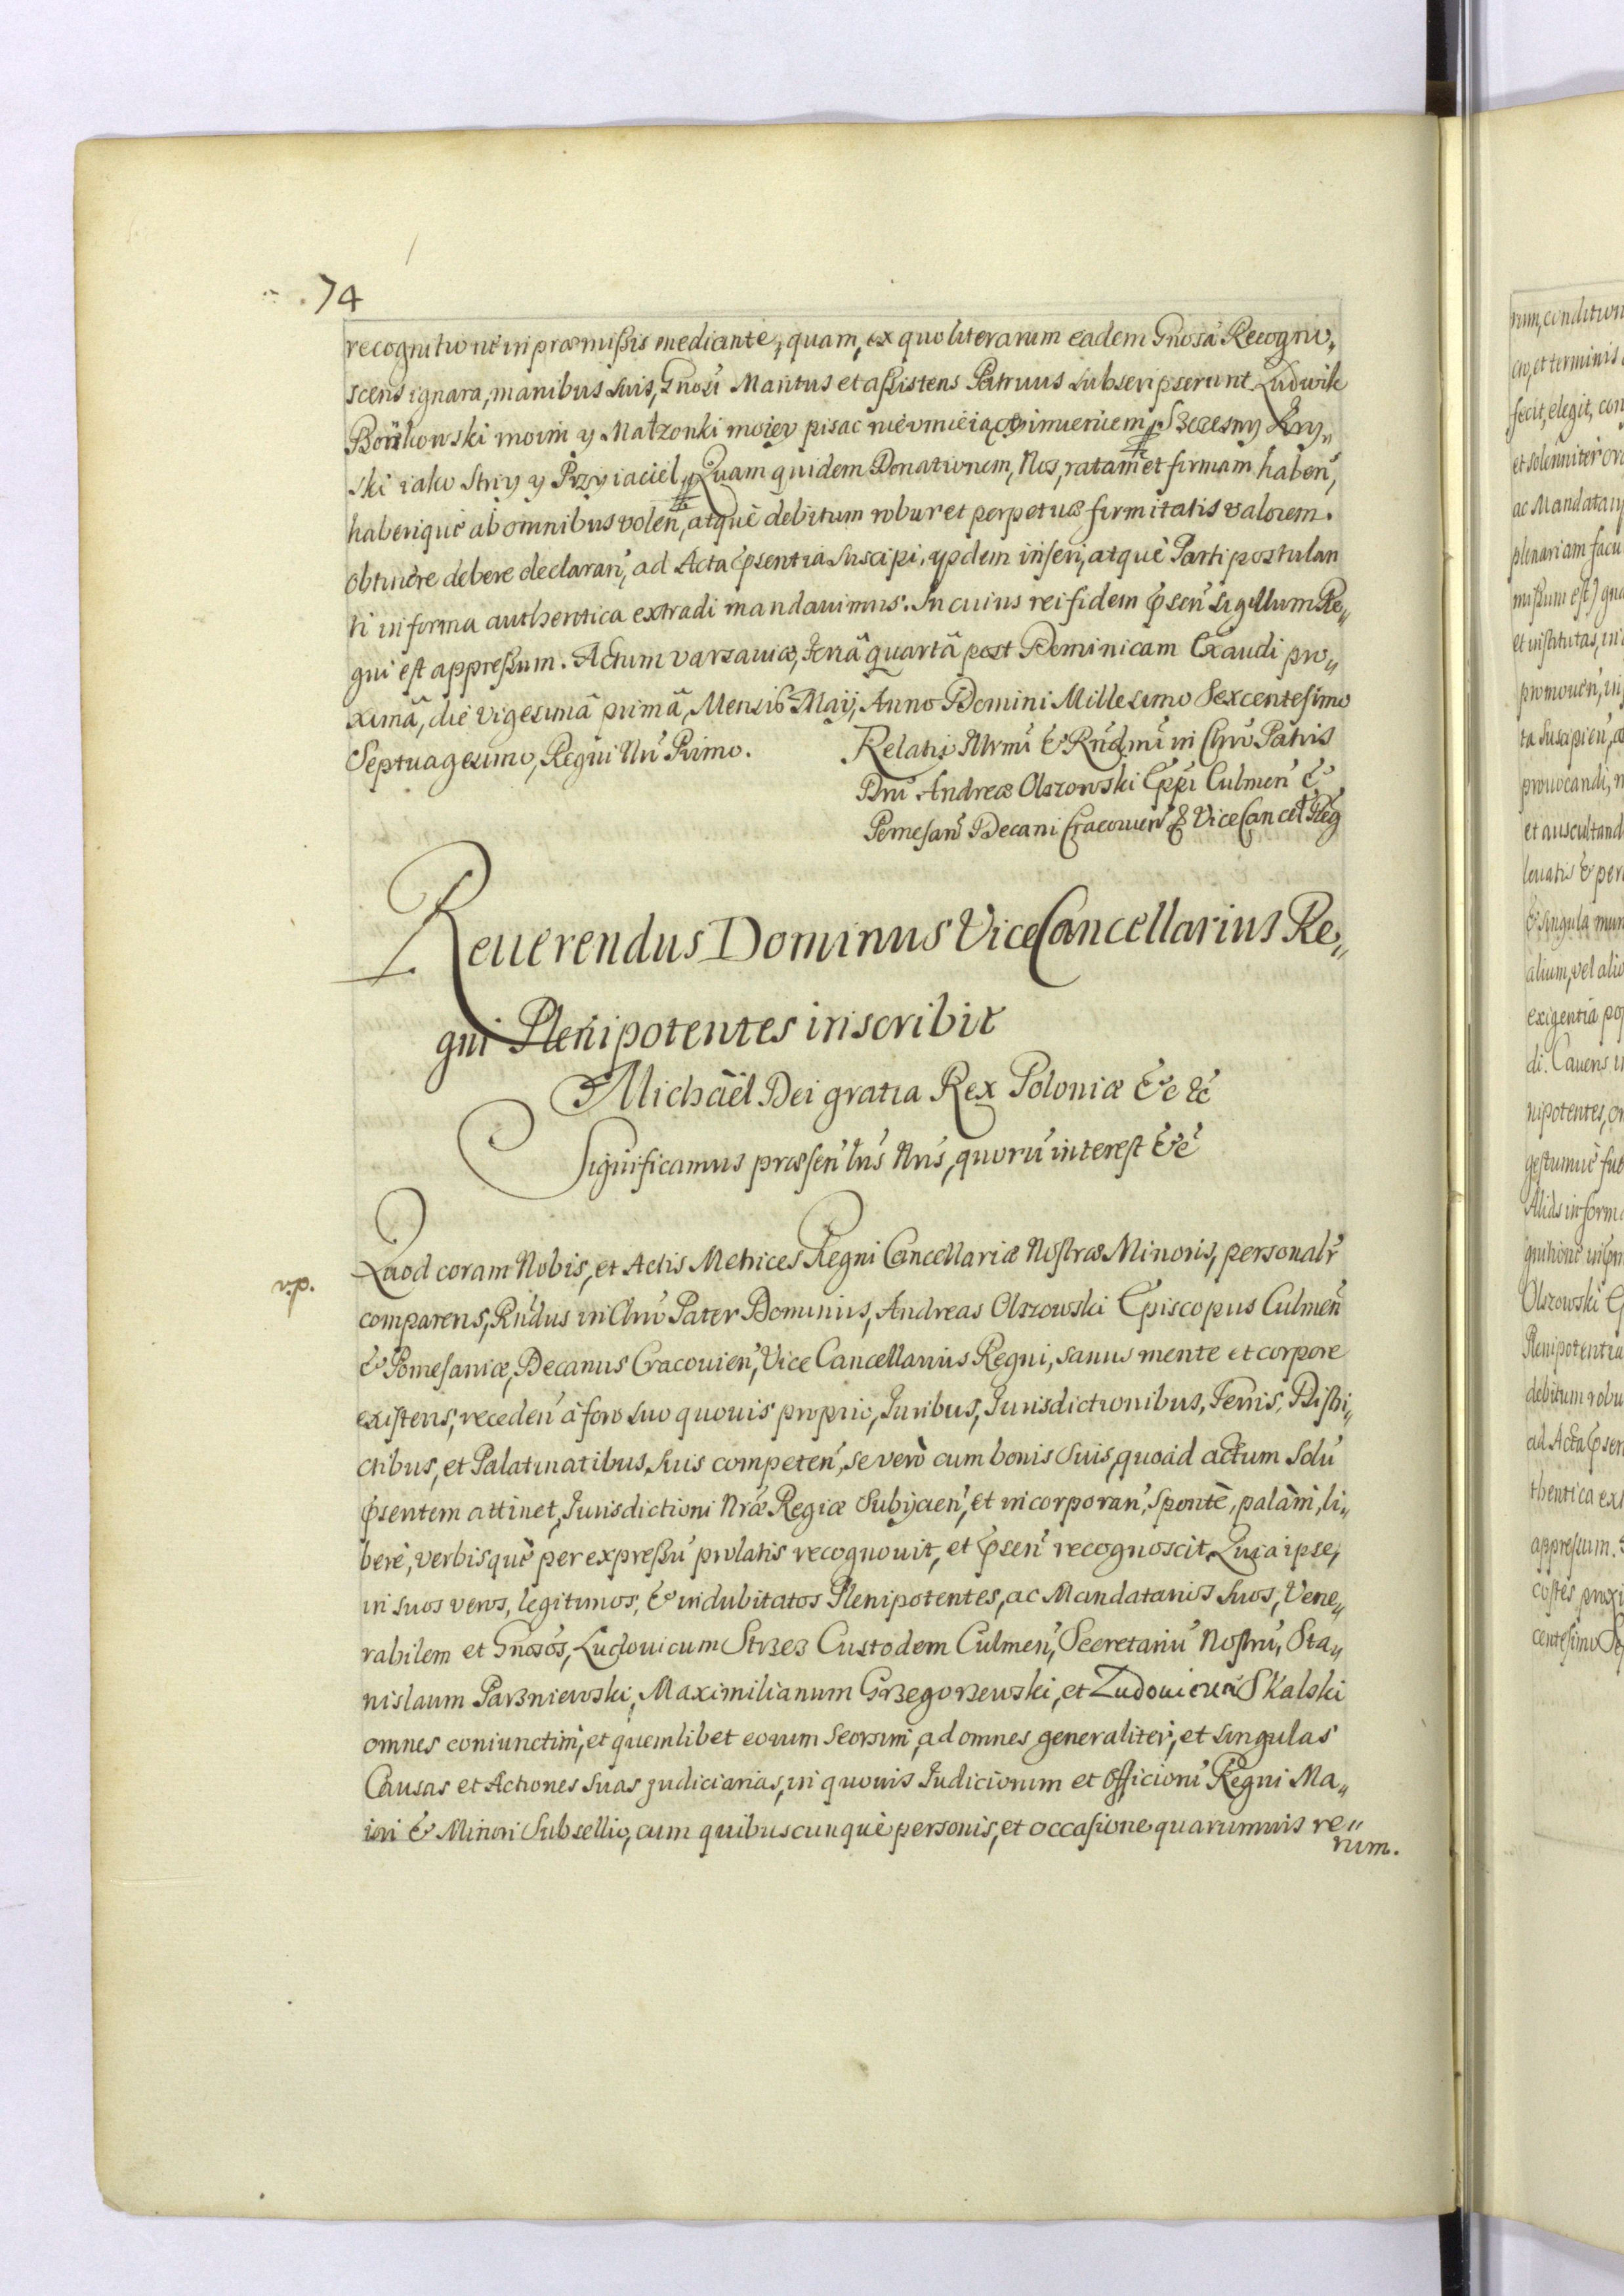 74
recognitione in præmissis mediante, quam, ex quo literarum eadem Gnosa Recogno,
scens ignara, manibus suis, Gnosi Maritus et assistens Patruus subscripserunt Ludwik
Bońkowski moim y Małzonki moiey pisac nieumieiącey imieniem Szczesny
ski iako Striy y Przyiaciel Quam quidem Donationem, Nos, ratam et firmam haben,
haberique ab omnibus volen, atque debitum robur et perpetuæ firmitatis valorem.
obtinere debere declaran, ad Acta psentia suscipi, ysdem inseri, atque Parti postulan
ti in forma authentica extradi mandauimus. In cuius rei fidem psen sigillum Re„
gni est appressum. Actum Varsauiæ, feria quarta post Dominicam Exaudi pro„
xima, die vigesima prima, Mensis Maij, Anno Domini Millesimo Sexcentesimo
Septuagesimo, Regni Nri Primo.
Relatio Illrmi & Rndmi in Chro Patris
Dni Andreæ Olszowski Eppi Culmen &
Pomesan Decani Cracouien & ViceCancel Reg
Reuerendus Dominus ViceCancellarius Re„
gni Plenipotentes inscribit
Michaël Dei gratia Rex Poloniæ &c &c
Significamus præsen lris Nris, quoru interest &c
Quod coram Nobis, et Actis Metrices Regni Cancellariæ Nostræ Minoris, personalr
comparens, Rndus in Chro Pater Dominus, Andreas Olszowski Episcopus Culmen
& Pomesaniæ, Decanus Cracouien, Vice Cancellarius Regni, sanus mente et corpore
existens, receden à foro suo quouis proprio, Juribus, Jurisdictionibus, Terris, Distri„
ctibus, et Palatinatibus, suis competen, se verò cum bonis suis, quoad actum solu
psentem attinet, Jurisdictioni Nræ Regiæ Subijcien, et incorporan, Sponte, palàm, li„
berè, verbisquè per expressu prolatis recognouit, et psen recognoscit, Quia ipse,
in suos veros, legitimos, & indubitatos Plenipotentes, ac Mandatarios suos, Vene„
rabilem et Gnosos, Ludouicum Strzez Custodem Culmen, Secretariu Nostru, Sta„
nislaum Parzniewski, Maximilianum Grzegorzewski, et Ludouicum Skalski
omnes coniunctim, et quemlibet eorum seorsim, ad omnes generaliter, et singulas
Causas et Actiones suas judiciarias, in quouis Judiciorum et Officioru Regni Ma„
iori & Minori Subsellio, cum quibuscunquè personis, et occasione quarumuis re„
rum.